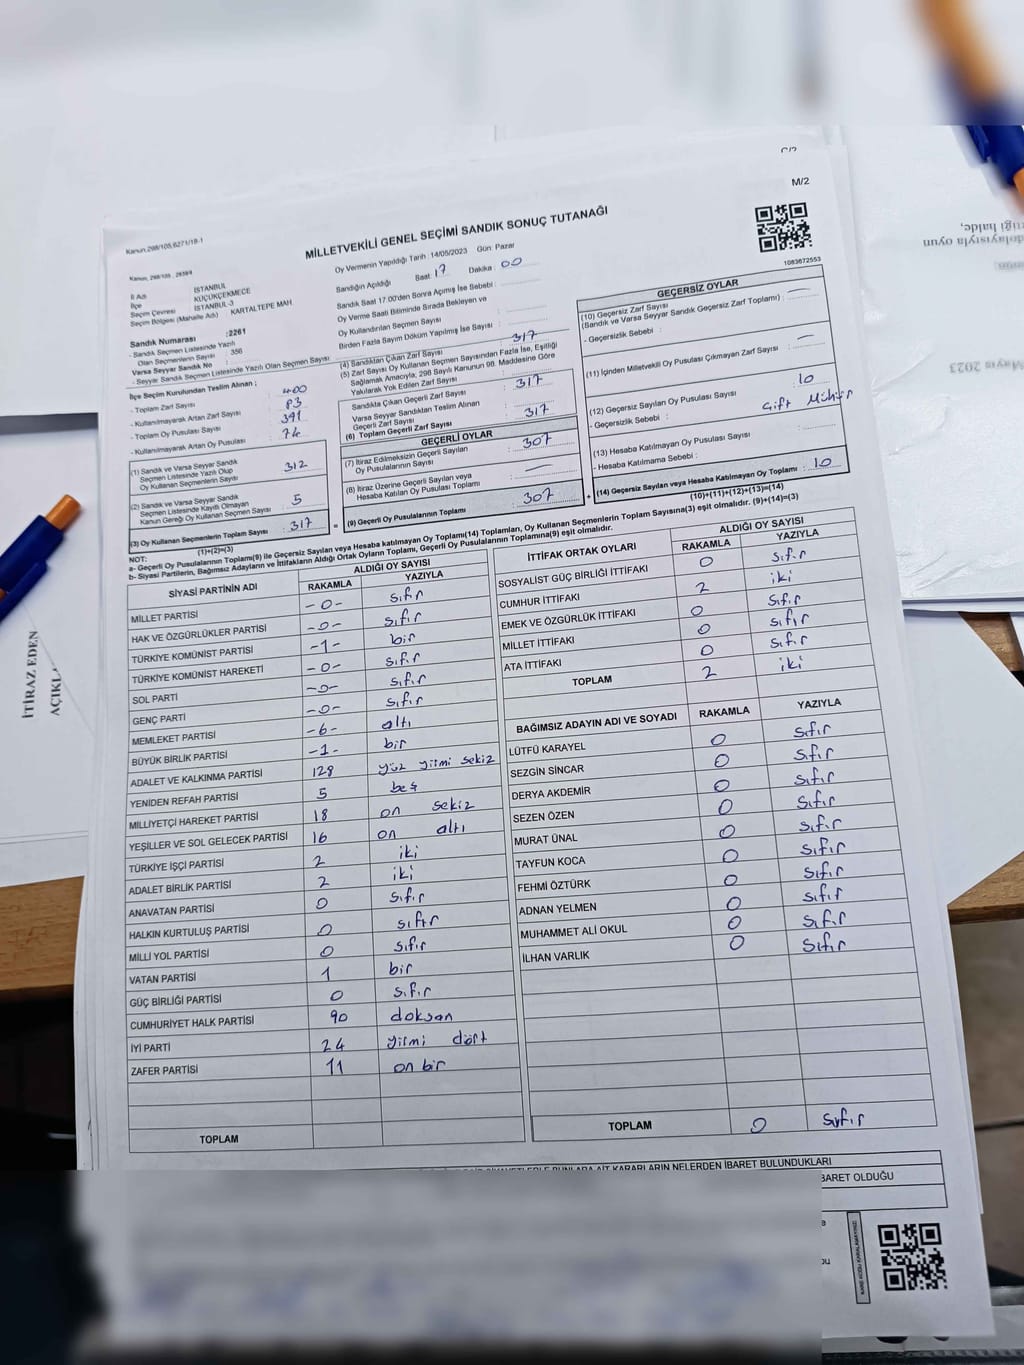 M/2
Kanun,298/105,6271/18-1
MİLLETVEKİLİ GENEL SEÇİMİ SANDIK SONUÇ TUTANAĞI
1083672553
İl Adı : İSTANBUL
İlçe : KÜÇÜKÇEKMECE
Seçim Çevresi : İSTANBUL-3
Seçim Bölgesi (Mahalle Adı) : KARTALTEPE MAH.
Sandık Numarası :2261
- Sandık Seçmen Listesinde Yazılı
Olan Seçmenlerin Sayısı : 356
Varsa Seyyar Sandık No :
- Seyyar Sandık Seçmen Listesinde Yazılı Olan Seçmen Sayısı :
İlçe Seçim Kurulundan Teslim Alınan ;
- Toplam Zarf Sayısı : 400
- Kullanılmayarak Artan Zarf Sayısı : 83
- Toplam Oy Pusulası Sayısı : 391
- Kullanılmayarak Artan Oy Pusulası : 74
(1) Sandık ve Varsa Seyyar Sandık
Seçmen Listesinde Yazılı Olup
Oy Kullanan Seçmenlerin Sayısı : 312
(2) Sandık ve Varsa Seyyar Sandık
Seçmen Listesinde Kayıtlı Olmayan
Kanun Gereği Oy Kullanan Seçmen Sayısı : 5
(3) Oy Kullanan Seçmenlerin Toplam Sayısı : 317
(1)+(2)=(3)
Oy Vermenin Yapıldığı Tarih : 14/05/2023 Gün: Pazar
Sandığın Açıldığı Saat : 17 Dakika : 00
Sandık Saat 17:00'den Sonra Açılmış İse Sebebi :
Oy Verme Saati Bitiminde Sırada Bekleyen ve
Oy Kullandırılan Seçmen Sayısı :
Birden Fazla Sayım Döküm Yapılmış İse Sayısı :
(4) Sandıktan Çıkan Zarf Sayısı : 317
(5) Zarf Sayısı Oy Kullanan Seçmen Sayısından Fazla İse, Eşitliği
Sağlamak Amacıyla; 298 Sayılı Kanunun 98. Maddesine Göre
Yakılarak Yok Edilen Zarf Sayısı :
Sandıkta Çıkan Geçerli Zarf Sayısı : 317
Varsa Seyyar Sandıktan Teslim Alınan
Geçerli Zarf Sayısı :
(6) Toplam Geçerli Zarf Sayısı : 317
GEÇERLİ OYLAR
(7) İtiraz Edilmeksizin Geçerli Sayılan
Oy Pusulalarının Sayısı : 307
(8) İtiraz Üzerine Geçerli Sayılan veya
Hesaba Katılan Oy Pusulası Toplamı : —
(9) Geçerli Oy Pusulalarının Toplamı : 307
GEÇERSİZ OYLAR
(10) Geçersiz Zarf Sayısı : —
(Sandık ve Varsa Seyyar Sandık Geçersiz Zarf Toplamı)
- Geçersizlik Sebebi :
(11) İçinden Milletvekili Oy Pusulası Çıkmayan Zarf Sayısı : —
(12) Geçersiz Sayılan Oy Pusulası Sayısı : 10
- Geçersizlik Sebebi : Çift Mühür
(13) Hesaba Katılmayan Oy Pusulası Sayısı :
- Hesaba Katılmama Sebebi :
(14) Geçersiz Sayılan veya Hesaba Katılmayan Oy Toplamı : 10
(10)+(11)+(12)+(13)=(14)
NOT:
a- Geçerli Oy Pusulalarının Toplamı(9) ile Geçersiz Sayılan veya Hesaba katılmayan Oy Toplamı(14) Toplamları, Oy Kullanan Seçmenlerin Toplam Sayısına(3) eşit olmalıdır. (9)+(14)=(3)
b- Siyasi Partilerin, Bağımsız Adayların ve İttifakların Aldığı Ortak Oyların Toplamı, Geçerli Oy Pusulalarının Toplamına(9) eşit olmalıdır.
SİYASİ PARTİNİN ADI ALDIĞI OY SAYISI
RAKAMLA YAZIYLA
MİLLET PARTİSİ -0- sıfır
HAK VE ÖZGÜRLÜKLER PARTİSİ -0- sıfır
TÜRKİYE KOMÜNİST PARTİSİ -1- bir
TÜRKİYE KOMÜNİST HAREKETİ -0- sıfır
SOL PARTİ -0- sıfır
GENÇ PARTİ -0- sıfır
MEMLEKET PARTİSİ -6- altı
BÜYÜK BİRLİK PARTİSİ -1- bir
ADALET VE KALKINMA PARTİSİ 128 yüz yirmi sekiz
YENİDEN REFAH PARTİSİ 5 beş
MİLLİYETÇİ HAREKET PARTİSİ 18 on sekiz
YEŞİLLER VE SOL GELECEK PARTİSİ 16 on altı
TÜRKİYE İŞÇİ PARTİSİ 2 iki
ADALET BİRLİK PARTİSİ 2 iki
ANAVATAN PARTİSİ 0 sıfır
HALKIN KURTULUŞ PARTİSİ 0 sıfır
MİLLİ YOL PARTİSİ 0 sıfır
VATAN PARTİSİ 1 bir
GÜÇ BİRLİĞİ PARTİSİ 0 sıfır
CUMHURİYET HALK PARTİSİ 90 doksan
İYİ PARTİ 24 yirmi dört
ZAFER PARTİSİ 11 on bir
TOPLAM
İTTİFAK ORTAK OYLARI ALDIĞI OY SAYISI
RAKAMLA YAZIYLA
SOSYALİST GÜÇ BİRLİĞİ İTTİFAKI 0 sıfır
CUMHUR İTTİFAKI 2 iki
EMEK VE ÖZGÜRLÜK İTTİFAKI 0 sıfır
MİLLET İTTİFAKI 0 sıfır
ATA İTTİFAKI 0 sıfır
TOPLAM 2 iki
BAĞIMSIZ ADAYIN ADI VE SOYADI RAKAMLA YAZIYLA
LÜTFÜ KARAYEL 0 sıfır
SEZGİN SİNCAR 0 sıfır
DERYA AKDEMİR 0 sıfır
SEZEN ÖZEN 0 sıfır
MURAT ÜNAL 0 sıfır
TAYFUN KOCA 0 sıfır
FEHMİ ÖZTÜRK 0 sıfır
ADNAN YELMEN 0 sıfır
MUHAMMET ALİ OKUL 0 sıfır
İLHAN VARLIK 0 sıfır
TOPLAM 0 sıfır
KARARLARIN NELERDEN İBARET BULUNDUKLARI
BARET OLDUĞU
İTİRAZ EDEN